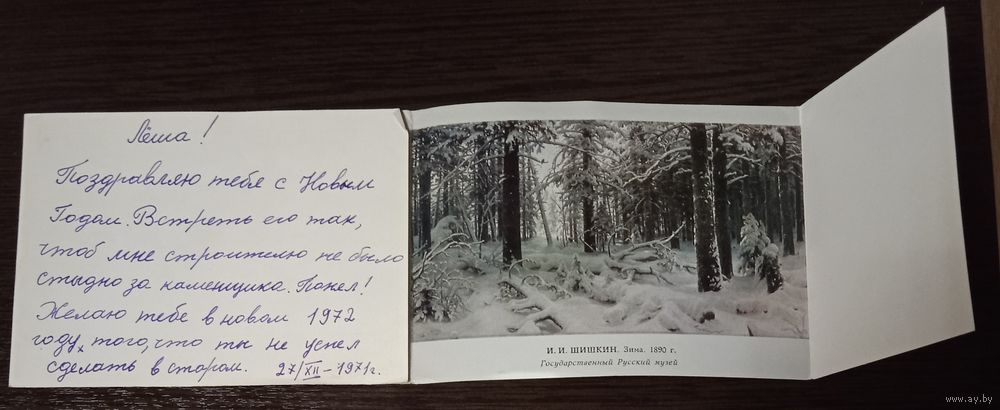 Лёша!
Поздравляю тебя с Новым
Годом. Встреть его так,
чтоб мне строителю не было
стыдно за каменщика. Понел!
Желаю тебе в новом 1972
году, того, что ты не успел
сделать в старом. 27/XII-1971г.
И. И. ШИШКИН. Зима. 1890 г.
Государственный Русский музей
www.ay.by